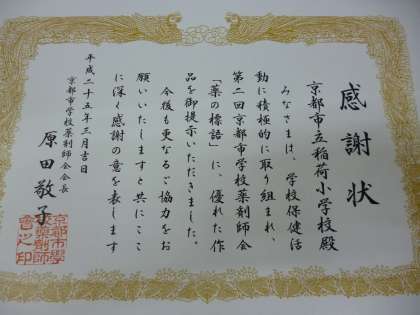 感謝状
京都市立稲荷小学校殿
みなさまは、学校保健活
動に積極的に取り組まれ、
第二回京都市学校薬剤師会
「薬の標語」に、優れた作
品を御提示いただきました。
今後も更なるご協力をお
願いいたしますと共にここ
に深く感謝の意を表します
平成二十五年三月吉日
京都市学校薬剤師会会長
原田敬子
京都市學
校薬劑師
會之印